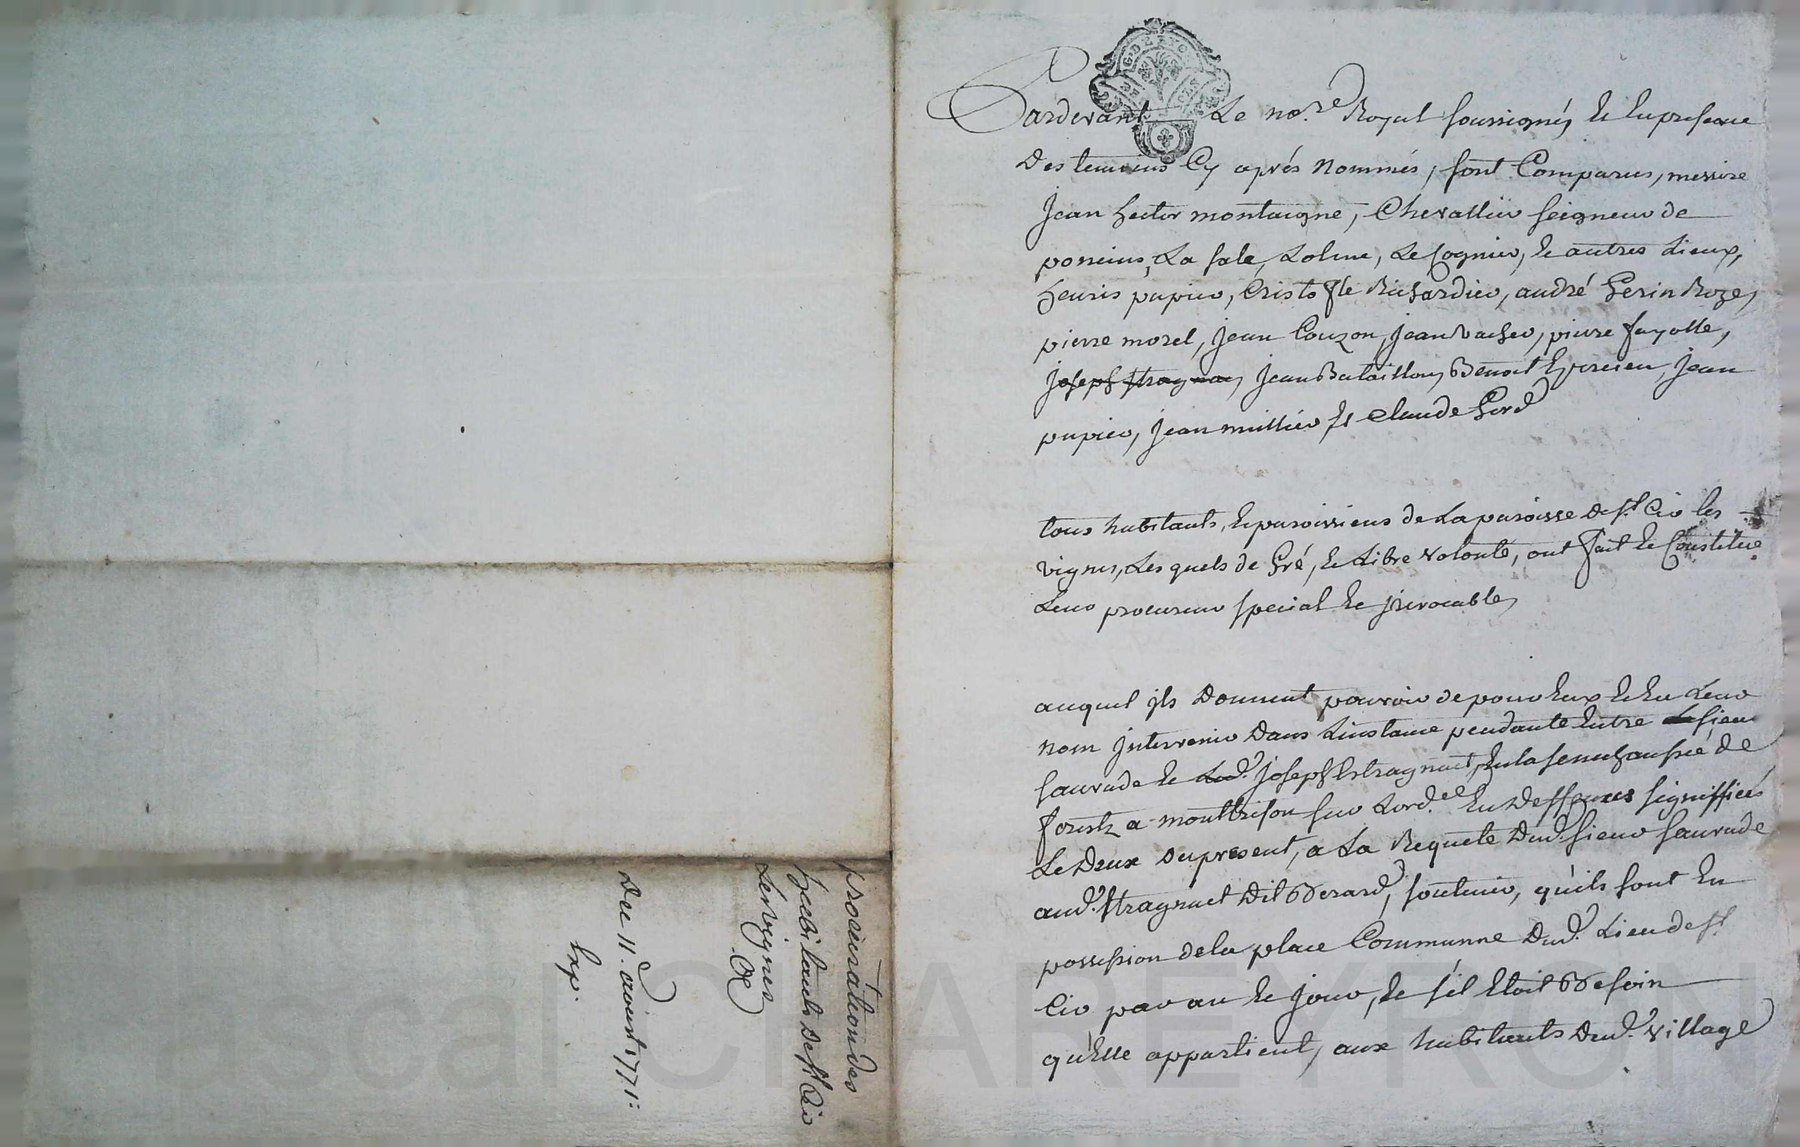 procuration des
habitants de st Cir
Les vignes
Du 11. aoust 1771:
Exp.
Pardevant Le no.re Royal soussigné, Et En presence
Des temoins Cy aprés Nommés, sont Comparus, messire
Jean hector montaigne, Chevallier seigneur de
poncins, La sale, Lolme, Le Cognier, Et autres Lieux,
henris pupier, Cristofle Richardier, andré Gerin Roze,
pierre morel, Jean Couzon, Jean Vacher, pierre fayolle,
Joseph Jean Bataillon, Benoit Jean
pupier, Jean mullier Et Claude
tous habitants, Et paroissiens de La paroisse de st Cir les
vignes, Les quels de Gré, Et Libre volonté, ont fait Et Constitué
Leur procureur special Et jrrevocable,
auquel jls Donnent pouvoir de pour Eux Et En Leur
nom jntervenir Dans Linstance pendante Entre Le sieur
sauvade Et Led. Joseph Estragnat, En la senechaussée de
forestz a montbrison sur Lord.ce En Deffenses signiffiées
Le Deux Du present, a La Requete Dud. sieur sauvade
aud. Stragnat Dit Berard, soutenir, qu'ils sont En
possession de la place Communne Dud. Lieu de st
Cir par an Et jour, Et s'il Etoit Besoin
qu'Elle appartient, aux habitants Dud. village